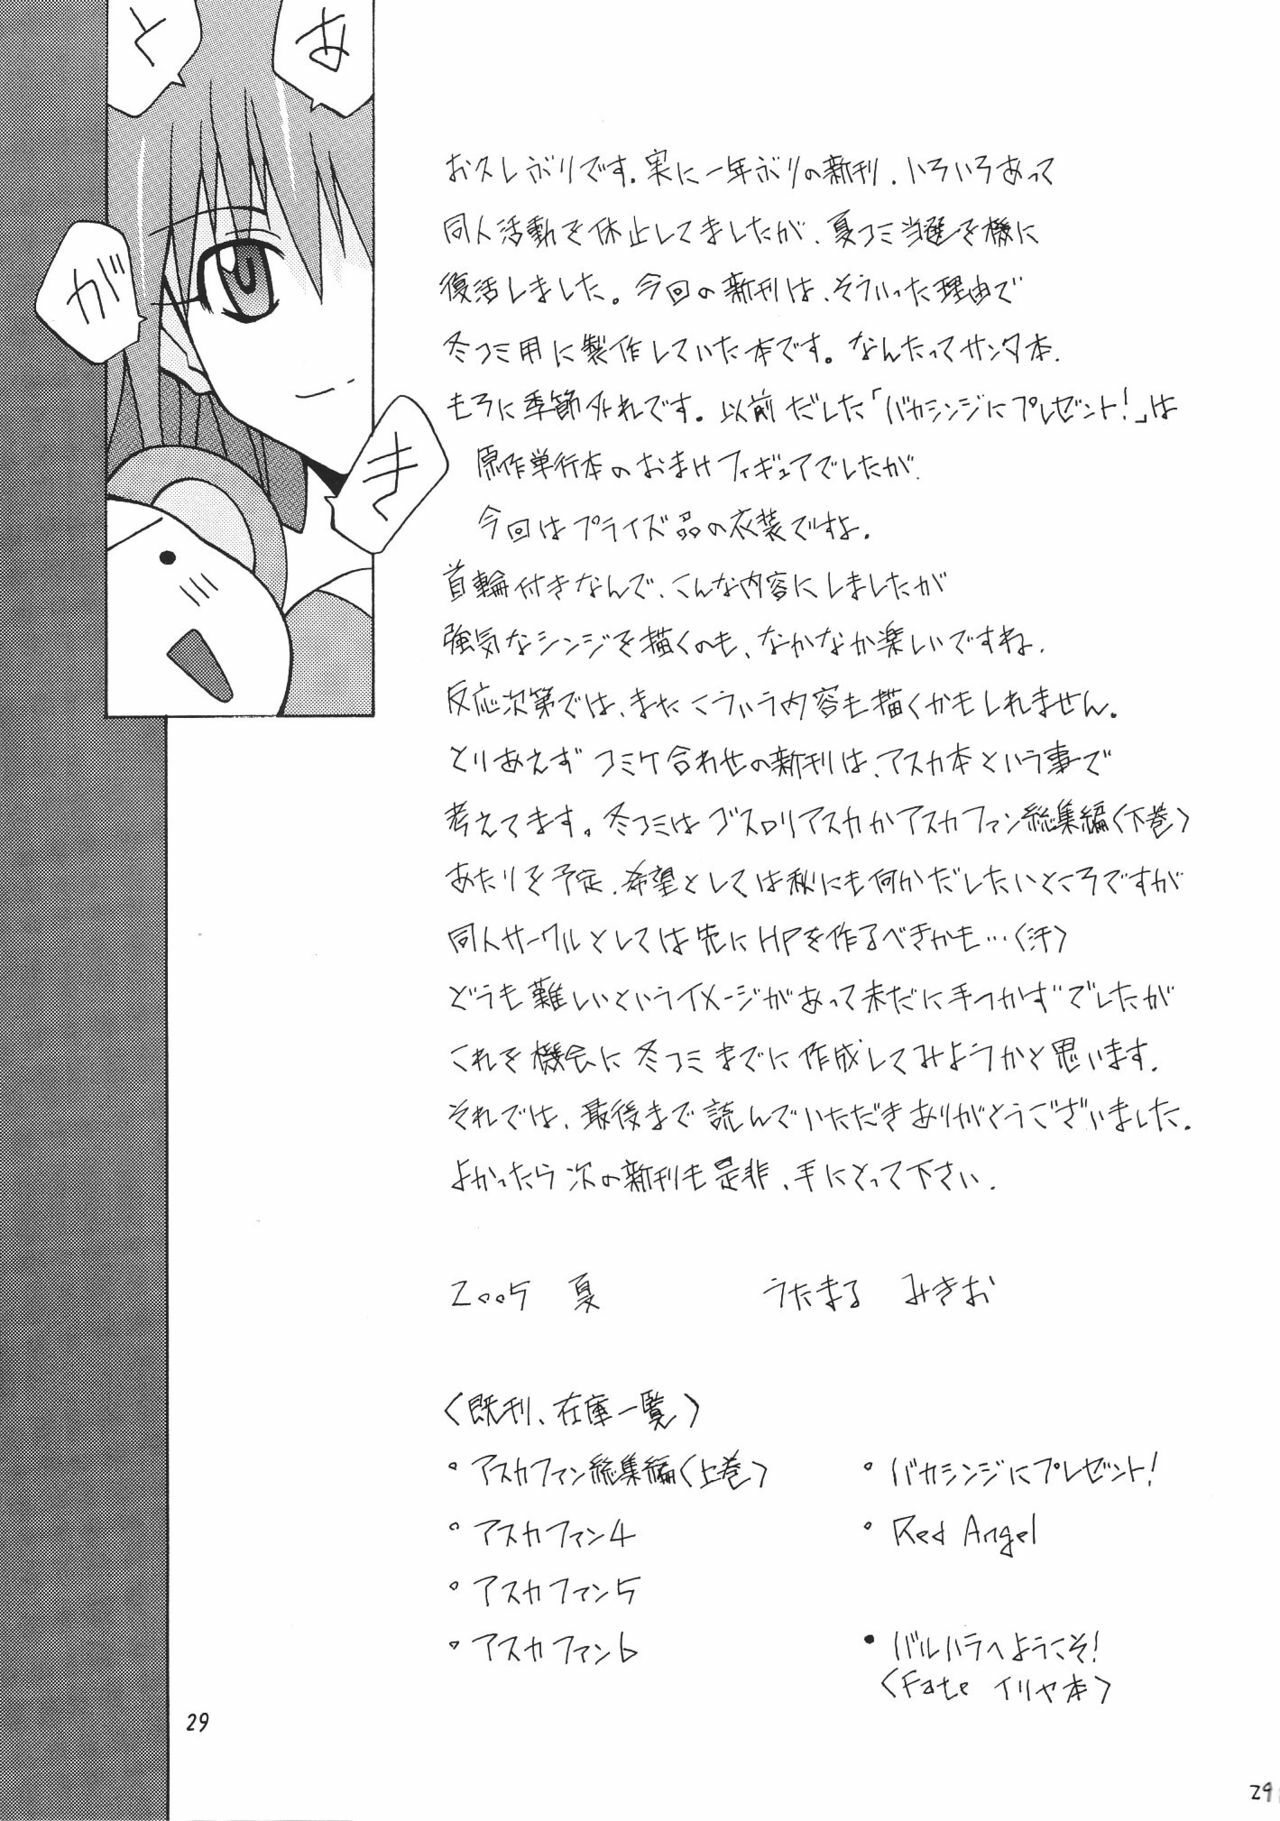 あ
と
が
き
お久しぶりです。実に一年ぶりの新刊、いろいろあって
同人活動を休止してましたが、夏コミ当選を機に
復活しました。今回の新刊は、そういった理由で
冬コミ用に製作していた本です。なんたってサンタ本、
もろに季節外れです。以前だした「バカシンジにプレゼント!」は
原作単行本のおまけフィギュアでしたが、
今回はプライズ品の衣装ですよ。
首輪付きなんで、こんな内容にしましたが
強気なシンジを描くのも、なかなか楽しいですね。
反応次第では、またこういう内容も描くかもしれません。
とりあえずコミケ合わせの新刊は、アスカ本という事で
考えてます。冬コミはゴスロリアスカかアスカファン総集編〈下巻〉
あたりを予定、希望としては秋にも何かだしたいところですが
同人サークルとしては先にHPを作るべきかも…〈汗〉
どうも難しいというイメージがあって未だに手つかずでしたが
これを機会に冬コミまでに作成してみようかと思います。
それでは、最後まで読んでいただきありがとうございました。
よかったら次の新刊も是非、手にとって下さい。
2005 夏 うたまる みきお
〈既刊、在庫一覧〉
・アスカファン総集編〈上巻〉
・アスカファン4
・アスカファン5
・アスカファン6
・バカシンジにプレゼント!
・Red Angel
・バルハラへようこそ!
〈Fate イリヤ本〉
29
29